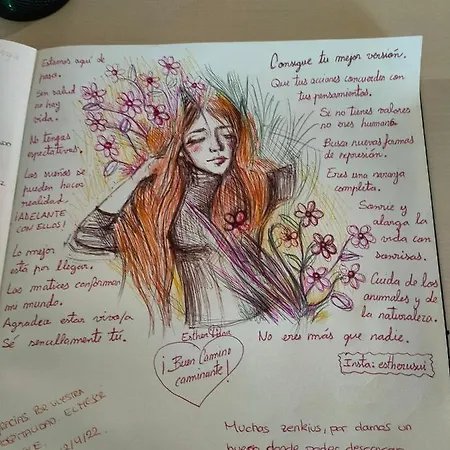 Estamos aquí de
paso.
Sin salud
no hay
vida.
No tengas
expectativas.
Los sueños se
pueden hacer
realidad.
¡ADELANTE
CON ELLOS!
Lo mejor
está por llegar.
Los matices conforman
mi mundo.
Agradece estar vivo/a
Sé sencillamente tú.
Consigue tu mejor versión.
Que tus acciones concuerden con
tus pensamientos.
Si no tienes valores
no eres humano.
Busca nuevas formas
de expresión.
Eres una naranja
completa.
Sonríe y
alarga la
vida con
sonrisas.
Cuida de los
animales y de
la naturaleza.
No eres más que nadie.
Esther
¡Buen Camino
caminante!
Insta: estherusui
GRACIAS POR VUESTRA
HOSPITALIDAD
2/4/22
Muchas zenkius, por darnos un
donde poder descansar